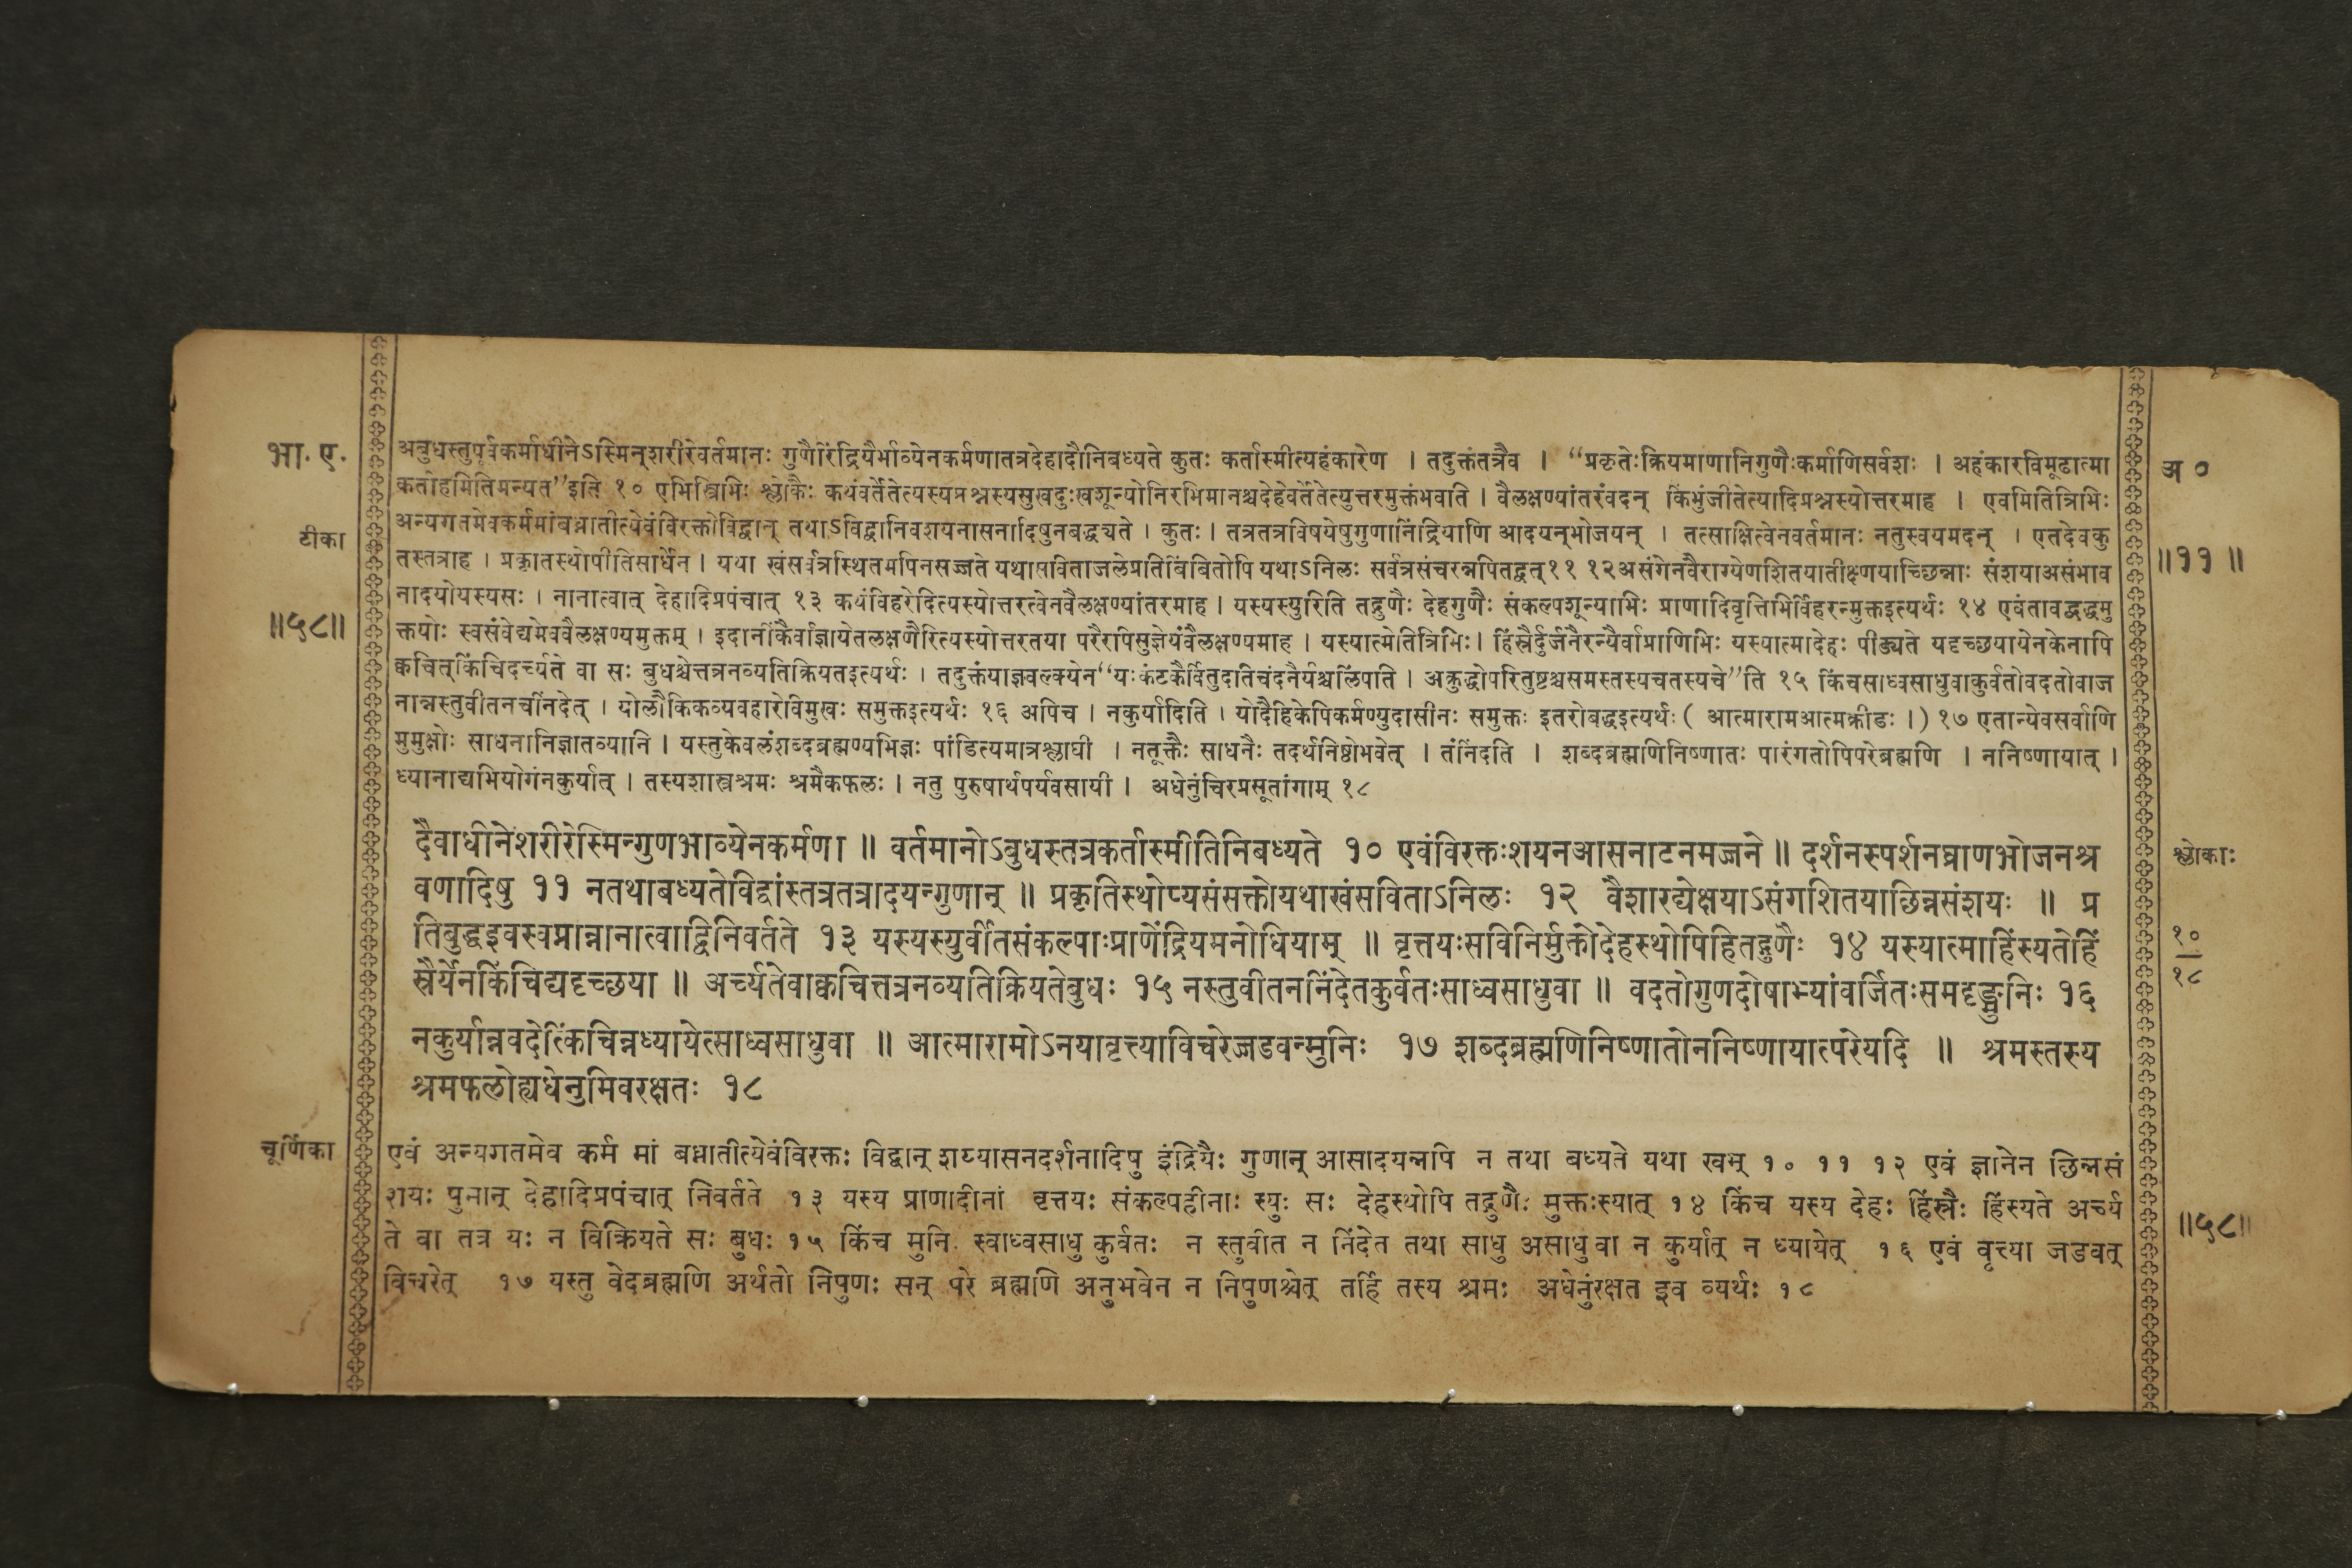 भा. ए.
टीका
॥५८॥
अबुधस्तुपूर्वकर्माधीनेऽस्मिन्शरीरेवर्तमानः गुणैरिंद्रियैर्भाव्येनकर्मणातत्रदेहादौनिबध्यते कुतः कर्तास्मीत्यहंकारेण । तदुक्तंतत्रैव । “प्रकृतेःक्रियमाणानिगुणैःकर्माणिसर्वशः । अहंकारविमूढात्मा
कर्ताहमितिमन्यत”इति १० एभिस्त्रिभिः श्लोकैः कथंवर्तेतेत्यस्यप्रश्नस्यसुखदुःखशून्योनिरभिमानश्चदेहेवर्तेतेत्युत्तरमुक्तंभवति । वैलक्षण्यांतरंवदन् किंभुंजीतेत्यादिप्रश्नस्योत्तरमाह । एवमितित्रिभिः
अन्यगतमेवकर्ममांबध्नातीत्येवंविरक्तोविद्वान् तथाऽविद्वानिवशयनासनादिषुनबद्ध्यते । कुतः । तत्रतत्रविषयेषुगुणानिंद्रियाणि आदयन्भोजयन् । तत्साक्षित्वेनवर्तमानः नतुस्वयमदन् । एतदेवकु
तस्तत्राह । प्रकृतिस्थोपीतिसार्धेन । यथा खंसर्वत्रस्थितमपिनसज्जते यथासविताजलेप्रतिबिंबितोपि यथाऽनिलः सर्वत्रसंचरन्नपितद्वत्११ १२असंगेनवैराग्येणशितयातीक्ष्णयाच्छिन्नाः संशयाअसंभाव
नादयोयस्यसः । नानात्वात् देहादिप्रपंचात् १३ कथंविहरेदित्यस्योत्तरत्वेनवैलक्षण्यांतरमाह । यस्यस्युरिति तद्गुणैः देहगुणैः संकल्पशून्याभिः प्राणादिवृत्तिभिर्विहरन्मुक्तइत्यर्थः १४ एवंतावद्बद्धमु
क्तयोः स्वसंवेद्यमेववैलक्षण्यमुक्तम् । इदानींकैर्वाज्ञायेतलक्षणैरित्यस्योत्तरतया परैरपिसुज्ञेयंवैलक्षण्यमाह । यस्यात्मेतित्रिभिः। हिंस्रैर्दुर्जनैरन्यैर्वाप्राणिभिः यस्यात्मादेहः पीड्यते यदृच्छयायेनकेनापि
क्वचित्किंचिदर्च्यते वा सः बुधश्चेत्तत्रनव्यतिक्रियतइत्यर्थः । तदुक्तंयाज्ञवल्क्येन“यःकंटकैर्वितुदतिचंदनैर्यश्चलिंपति । अक्रुद्धोपरितुष्टश्चसमस्तस्यचतस्यचे”ति १५ किंचसाध्वसाधुवाकुर्वतोवदतोवाज
नान्नस्तुवीतनचनिंदेत् । योलौकिकव्यवहारेविमुखः समुक्तइत्यर्थः १६ अपिच । नकुर्यादिति । योदैहिकेपिकर्मण्युदासीनः समुक्तः इतरोबद्धइत्यर्थः ( आत्मारामआत्मक्रीडः ।) १७ एतान्येवसर्वाणि
मुमुक्षोः साधनानिज्ञातव्यानि । यस्तुकेवलंशब्दब्रह्मण्यभिज्ञः पांडित्यमात्रश्लाघी । नतूक्तैः साधनैः तदर्थनिष्ठोभवेत् । तंनिंदति । शब्दब्रह्मणिनिष्णातः पारंगतोपिपरेब्रह्मणि । ननिष्णायात् ।
ध्यानाद्यभियोगंनकुर्यात् । तस्यशास्त्रश्रमः श्रमैकफलः । नतु पुरुषार्थपर्यवसायी । अधेनुंचिरप्रसूतांगाम् १८
अ ०
॥११॥
दैवाधीनेशरीरेस्मिन्गुणभाव्येनकर्मणा ॥ वर्तमानोऽबुधस्तत्रकर्तास्मीतिनिबध्यते १० एवंविरक्तःशयनआसनाटनमज्जने ॥ दर्शनस्पर्शनघ्राणभोजनश्र
वणादिषु ११ नतथाबध्यतेविद्वांस्तत्रतत्रादयन्गुणान् ॥ प्रकृतिस्थोप्यसंसक्तोयथाखंसविताऽनिलः १२ वैशारद्येक्षयाऽसंगशितयाछिन्नसंशयः ॥ प्र
तिबुद्धइवस्वप्नान्नानात्वाद्विनिवर्तते १३ यस्यस्युर्वीतसंकल्पाःप्राणेंद्रियमनोधियाम् ॥ वृत्तयःसविनिर्मुक्तोदेहस्थोपिहितद्गुणैः १४ यस्यात्माहिंस्यतेहिं
स्रैर्येनकिंचिद्यदृच्छया ॥ अर्च्यतेवाक्वचित्तत्रनव्यतिक्रियतेबुधः १५ नस्तुवीतननिंदेतकुर्वतःसाध्वसाधुवा ॥ वदतोगुणदोषाभ्यांवर्जितःसमदृङ्मुनिः १६
नकुर्यान्नवदेत्किंचिन्नध्यायेत्साध्वसाधुवा ॥ आत्मारामोऽनयावृत्त्याविचरेज्जडवन्मुनिः १७ शब्दब्रह्मणिनिष्णातोननिष्णायात्परेयदि ॥ श्रमस्तस्य
श्रमफलोह्यधेनुमिवरक्षतः १८
श्लोकाः
१०
१८
चूर्णिका
एवं अन्यगतमेव कर्म मां बध्नातीत्येवंविरक्तः विद्वान् शय्यासनदर्शनादिषु इंद्रियैः गुणान् आसादयन्नपि न तथा बध्यते यथा खम् १० ११ १२ एवं ज्ञानेन छिन्नसं
शयः पुमान् देहादिप्रपंचात् निवर्तते १३ यस्य प्राणादीनां वृत्तयः संकल्पहीनाः स्युः सः देहस्थोपि तद्गुणैः मुक्तःस्यात् १४ किंच यस्य देहः हिंस्रैः हिंस्यते अर्च्य
ते वा तत्र यः न विक्रियते सः बुधः १५ किंच मुनि स्वाध्वसाधु कुर्वतः न स्तुवीत न निंदेत तथा साधु असाधु वा न कुर्यात् न ध्यायेत् १६ एवं वृत्त्या जडवत्
विचरेत् १७ यस्तु वेदब्रह्मणि अर्थतो निपुणः सन् परे ब्रह्मणि अनुभवेन न निपुणश्चेत् तर्हि तस्य श्रमः अधेनुंरक्षत इव व्यर्थः १८
॥५८॥